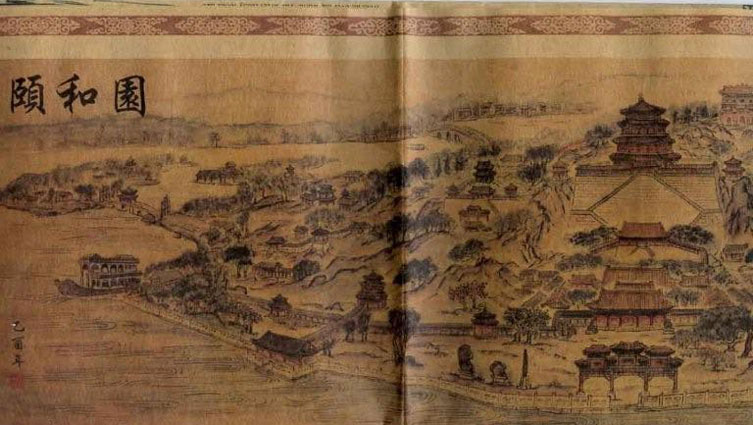 頤和園
乙酉年